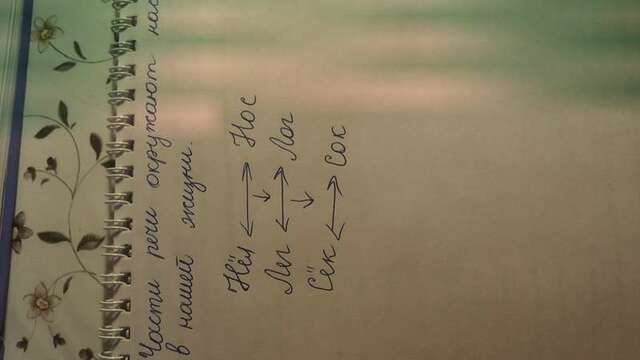 Части речи окружают нас
в нашей жизни.
Нёл ↔ Нос
Лег ↔ Лог
Сёк ↔ Сок